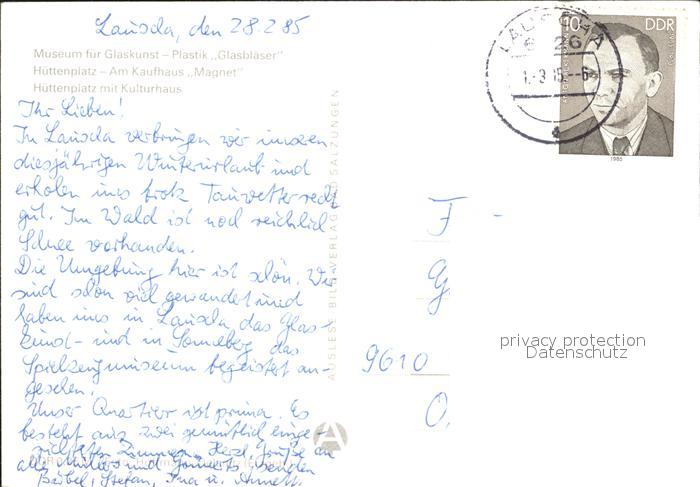 Lauscha, den 28.2.85
Museum für Glaskunst – Plastik „Glasbläser"
Hüttenplatz – Am Kaufhaus „Magnet"
Hüttenplatz mit Kulturhaus
Ihr Lieben!
In Lauscha verbringen wir unseren
diesjährigen Winterurlaub und
erholen uns trotz Tauwetter recht
gut. Im Wald ist noch reichlich
Schnee vorhanden.
Die Umgebung hier ist schön. Wir
sind schon viel gewandert und
haben uns in Lauscha das Glas-
kunst- und in Sonneberg das
Spielzeugmuseum begeistert an-
gesehen.
Unser Quartier ist prima. Es
besteht aus zwei gemütlich einge-
richteten Zimmern. Herzl. Grüße an
alle und senden
Bärbel, Stefan, Ina u. Annett.
AUSLESE-BILD-VERLAG BAD SALZUNGEN
A
LAUSCHA
6426
1.-3.85-6
10
DDR
1985
F -
G
9610
O,
privacy protection
Datenschutz